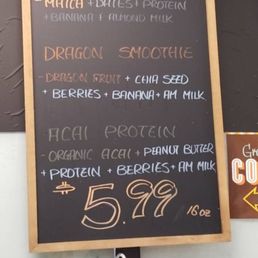 MATCA + DATES + PROTEIN
+ BANANA + ALMOND MILK
DRAGON SMOOTHIE
- DRAGON FRUIT + CHIA SEED
+ BERRIES + BANANA + AM MILK
ACAI PROTEIN
- ORGANIC ACAI + PEANUT BUTTER
+ PROTEIN + BERRIES + AM MILK
$5.99/16oz